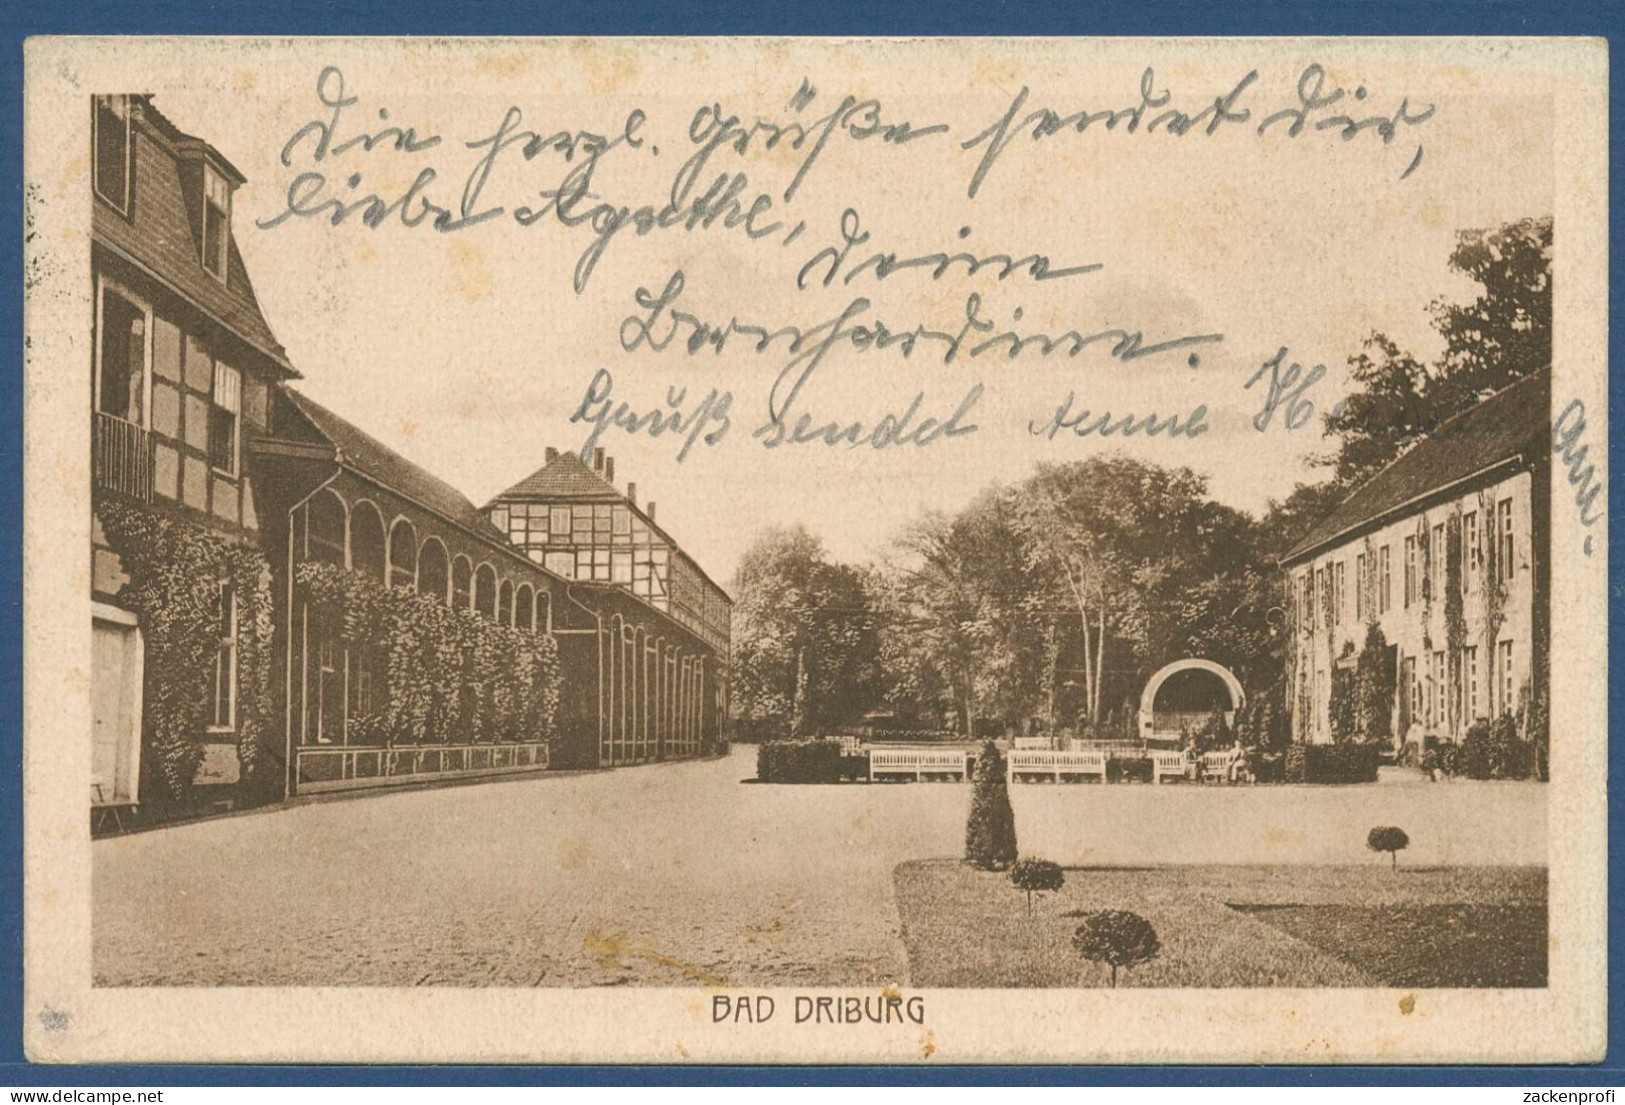 Die herzl. Grüße sendet dir,
liebe Agathe,
deine
Bernhardine.
Gruß sendet Anne H
BAD DRIBURG
zackenprofi